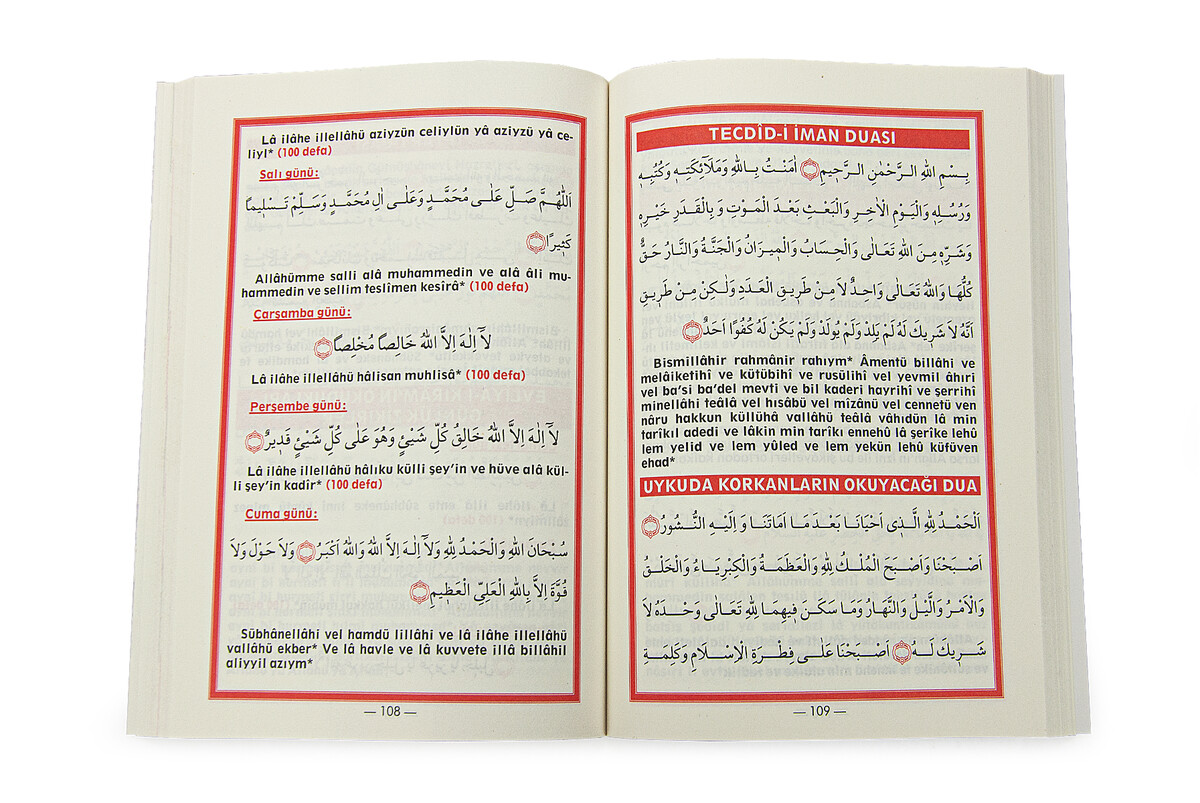 Lâ ilâhe illellâhü aziyzün celiylün yâ aziyzü yâ ce-
liyl* (100 defa)
Salı günü:
اَللّٰهُمَّ صَلِّ عَلٰى مُحَمَّدٍ وَعَلٰى اٰلِ مُحَمَّدٍ وَسَلِّمْ تَسْلٖيمًا
كَثٖيرًا
Allâhümme salli alâ muhammedin ve alâ âli mu-
hammedin ve sellim teslîmen kesîrâ* (100 defa)
Çarşamba günü:
لَآ اِلٰهَ اِلَّا اللّٰهُ خَالِصًا مُخْلِصًا
Lâ ilâhe illellâhü hâlisan muhlisâ* (100 defa)
Perşembe günü:
لَآ اِلٰهَ اِلَّا اللّٰهُ خَالِقُ كُلِّ شَيْئٍ وَهُوَ عَلٰى كُلِّ شَيْئٍ قَدٖيرٌ
Lâ ilâhe illellâhü hâlıku külli şey'in ve hüve alâ kül-
li şey'in kadîr* (100 defa)
Cuma günü:
سُبْحَانَ اللّٰهِ وَالْحَمْدُ لِلّٰهِ وَلَآ اِلٰهَ اِلَّا اللّٰهُ وَاللّٰهُ اَكْبَرُ وَلَا حَوْلَ وَلَا
قُوَّةَ اِلَّا بِاللّٰهِ الْعَلِيِّ الْعَظٖيمِ
Sübhânellâhi vel hamdü lillâhi ve lâ ilâhe illellâhü
vallâhü ekber* Ve lâ havle ve lâ kuvvete illâ billâhil
aliyyil azıym*
— 108 —
TECDÎD-İ İMAN DUASI
بِسْمِ اللّٰهِ الرَّحْمٰنِ الرَّحٖيمِ اٰمَنْتُ بِاللّٰهِ وَمَلَآئِكَتِهٖ وَكُتُبِهٖ
وَرُسُلِهٖ وَالْيَوْمِ الْاٰخِرِ وَالْبَعْثِ بَعْدَ الْمَوْتِ وَبِالْقَدَرِ خَيْرِهٖ
وَشَرِّهٖ مِنَ اللّٰهِ تَعَالٰى وَالْحِسَابُ وَالْمٖيزَانُ وَالْجَنَّةُ وَالنَّارُ حَقٌّ
كُلُّهَا وَاللّٰهُ تَعَالٰى وَاحِدٌ لَا مِنْ طَرٖيقِ الْعَدَدِ وَلٰكِنْ مِنْ طَرٖيقِ
اَنَّهُ لَا شَرٖيكَ لَهُ لَمْ يَلِدْ وَلَمْ يُولَدْ وَلَمْ يَكُنْ لَهُ كُفُوًا اَحَدٌ
Bismillâhir rahmânir rahıym* Âmentü billâhi ve
melâiketihî ve kütübihî ve rusülihî vel yevmil âhıri
vel ba'si ba'del mevti ve bil kaderi hayrihî ve şerrihî
minellâhi teâlâ vel hısâbü vel mîzânü vel cennetü ven
nâru hakkun küllühâ vallâhü teâlâ vâhıdün lâ min
tarîkıl adedi ve lâkin min tarîkı ennehû lâ şerîke lehû
lem yelid ve lem yûled ve lem yekün lehû küfüven
ehad*
UYKUDA KORKANLARIN OKUYACAĞI DUA
اَلْحَمْدُ لِلّٰهِ الَّذٖى اَحْيَانَا بَعْدَ مَا اَمَاتَنَا وَاِلَيْهِ النُّشُورُ
اَصْبَحْنَا وَاَصْبَحَ الْمُلْكُ لِلّٰهِ وَالْعَظَمَةُ وَالْكِبْرِيَاءُ وَالْخَلْقُ
وَالْاَمْرُ وَالَّيْلُ وَالنَّهَارُ وَمَا سَكَنَ فٖيهِمَا لِلّٰهِ تَعَالٰى وَحْدَهُ لَا
شَرٖيكَ لَهُ اَصْبَحْنَا عَلٰى فِطْرَةِ الْاِسْلَامِ وَكَلِمَةِ
— 109 —